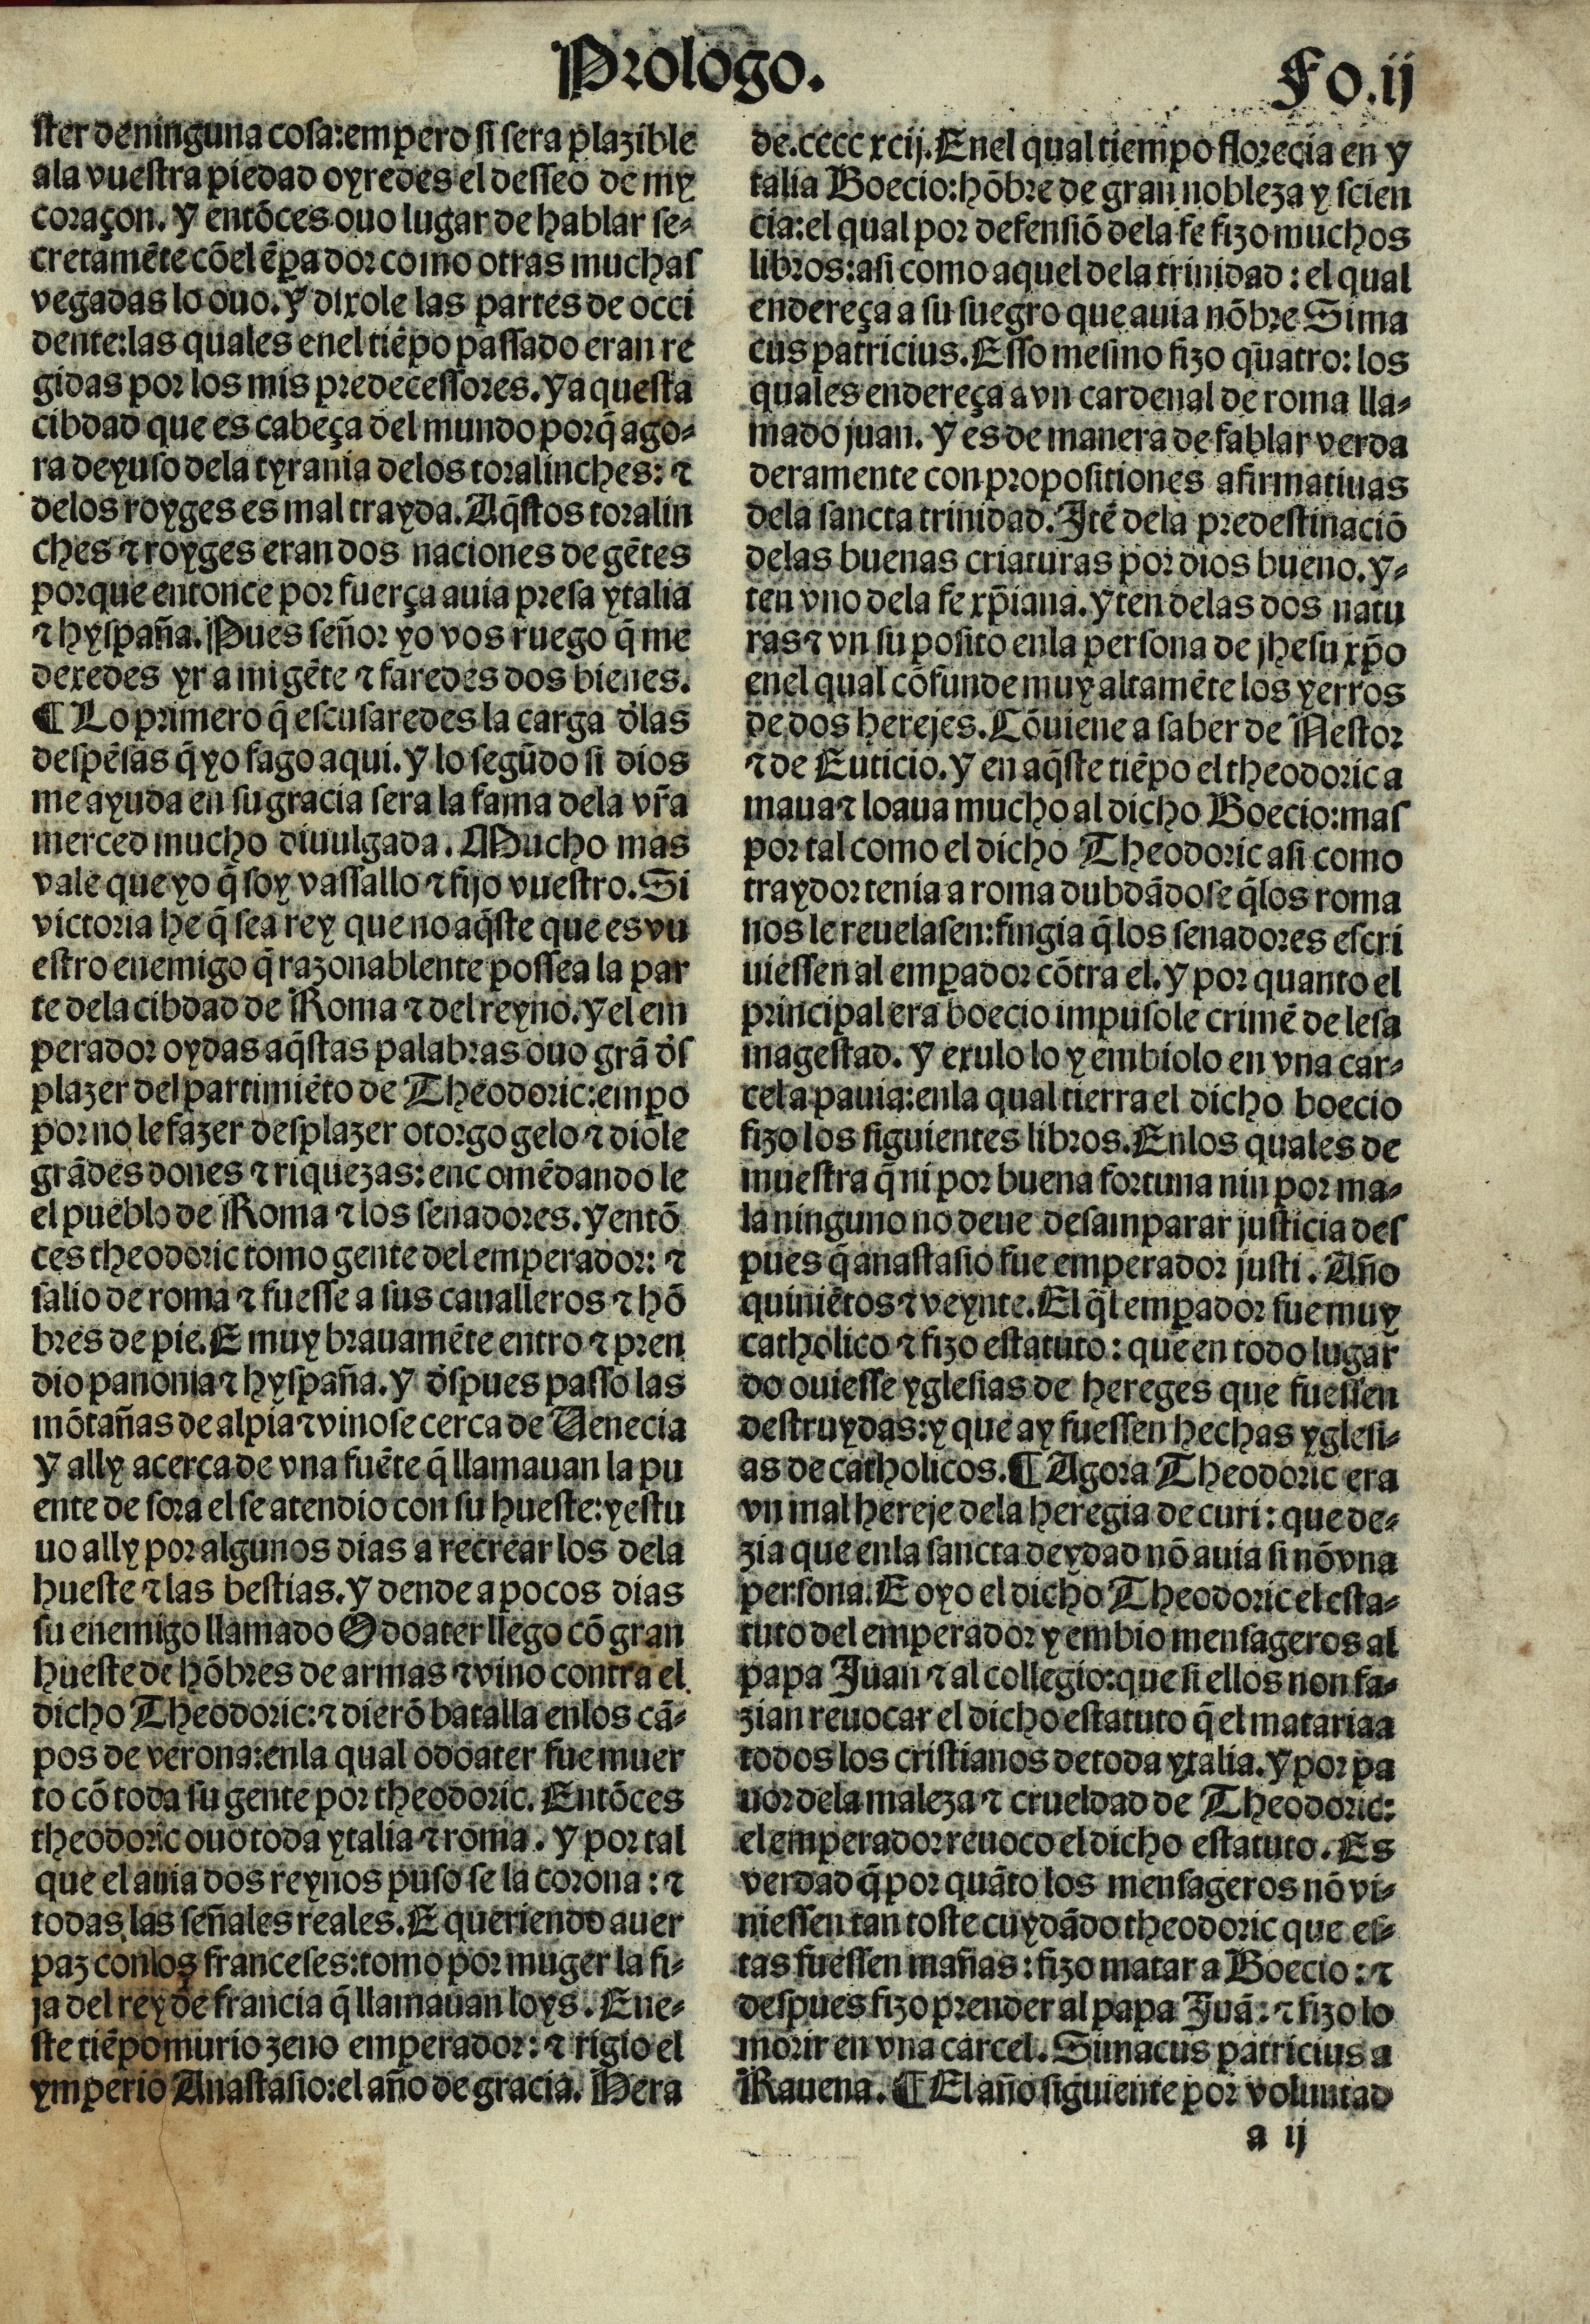 Prologo.
Fo.ij
ster de ninguna cosa: empero si sera plazible
ala vuestra piedad oyredes el desseo de my
coraçon. Y entõces ouo lugar de hablar se-
cretamẽte cõel ẽpador como otras muchas
vegadas lo ouo. Y dixole las partes de occi
dente: las quales enel tiẽpo passado eran re
gidas por los mis predecessores. Y a questa
cibdad que es cabeça del mundo porq̃ ago-
ra deyuso dela tyrania delos toralinches: ⁊
delos royges es mal trayda. Aq̃stos toralin
ches ⁊ royges eran dos naciones de gẽtes
porque entonce por fuerça auia presa ytalia
⁊ hyspaña. Pues señor yo vos ruego q̃ me
dexedes yr a mi gẽte ⁊ faredes dos bienes.
¶ Lo primero q̃ escusaredes la carga d̃las
despẽsas q̃ yo fago aqui. Y lo segũdo si dios
me ayuda en su gracia sera la fama dela vr̃a
merced mucho diuulgada. Mucho mas
vale que yo q̃ soy vassallo ⁊ fijo vuestro. Si
victoria he q̃ sea rey que no aq̃ste que es vu
estro enemigo q̃ razonablente possea la par
te dela cibdad de Roma ⁊ del reyno. Y el em
perador oydas aq̃stas palabras ouo grã d̃s
plazer del partimiẽto de Theodoric: empo
por no le fazer desplazer otorgo gelo ⁊ diole
grãdes dones ⁊ riquezas: encomẽdando le
el pueblo de Roma ⁊ los senadores. Y entõ
ces theodoric tomo gente del emperador: ⁊
salio de roma ⁊ fuesse a sus caualleros ⁊ hõ
bres de pie. E muy brauamẽte entro ⁊ pren
dio panonia ⁊ hyspaña. Y d̃spues passo las
mõtañas de alpia ⁊ vinose cerca de Uenecia
Y ally acerca de vna fuẽte q̃ llamauan la pu
ente de sora el se atendio con su hueste: y estu
uo ally por algunos dias a recrear los dela
hueste ⁊ las bestias. Y dende a pocos dias
su enemigo llamado Odoater llego cõ gran
hueste de hõbres de armas ⁊ vino contra el
dicho Theodoric: ⁊ dierõ batalla enlos cã-
pos de verona: enla qual odoater fue muer
to cõ toda su gente por theodoric. Entõces
theodoric ouo toda ytalia ⁊ roma. Y por tal
que el auia dos reynos puso se la corona: ⁊
todas las señales reales. E queriendo auer
paz conlos franceses: tomo por muger la fi-
ja del rey de francia q̃ llamauan loys. Ene-
ste tiẽpo murio zeno emperador: ⁊ rigio el
ymperio Anastasio: el año de gracia. Hera
de. cccc xcij. Enel qual tiempo florecia en y
talia Boecio: hõbre de gran nobleza y scien
cia: el qual por defensiõ dela fe fizo muchos
libros: asi como aquel dela trinidad: el qual
endereça a su suegro que auia nõbre Sima
cus patricius. Esso mesmo fizo quatro: los
quales endereça a vn cardenal de roma lla-
mado juan. Y es de manera de fablar verda
deramente con propositiones afirmatiuas
dela sancta trinidad. Itẽ dela predestinaciõ
delas buenas criaturas por dios bueno. Y-
ten vno dela fe xp̃iana. Y ten delas dos natu
ras ⁊ vn suposito enla persona de jhesu xp̃o
enel qual cõfunde muy altamẽte los yerros
de dos herejes. Cõuiene a saber de Nestor
⁊ de Euticio. Y en aq̃ste tiẽpo el theodoric a
maua ⁊ loaua mucho al dicho Boecio: mas
por tal como el dicho Theodoric asi como
traydor tenia a roma dubdãdose q̃los roma
nos le reuelasen: fingia q̃ los senadores escri
uiessen al empador cõtra el. Y por quanto el
principal era boecio impusole crimẽ de lesa
magestad. Y exulo lo y embiolo en vna car-
cel a pauia: enla qual tierra el dicho boecio
fizo los siguientes libros. Enlos quales de
muestra q̃ ni por buena fortuna nin por ma-
la ninguno no deue desamparar justicia des
pues q̃ anastasio fue emperador justi. Año
quiniẽtos ⁊ veynte. El q̃l empador fue muy
catholico ⁊ fizo estatuto: que en todo lugar
do ouiesse yglesias de hereges que fuessen
destruydas: y que ay fuessen hechas yglesi-
as de catholicos. ¶ Agora Theodoric era
vn mal hereje dela heregia de curi: que de-
zia que enla sancta deydad nõ auia si nõ vna
persona. E oyo el dicho Theodoric el esta-
tuto del emperador y embio mensageros al
papa Juan ⁊ al collegio: que si ellos non fa-
zian reuocar el dicho estatuto q̃ el mataria a
todos los cristianos de toda ytalia. Y por pa
uor dela maleza ⁊ crueldad de Theodoric:
el emperador reuoco el dicho estatuto. Es
verdad q̃ por quãto los mensageros nõ vi-
niessen tan toste cuydãdo theodoric que es-
tas fuessen mañas: fizo matar a Boecio: ⁊
despues fizo prender al papa Juã: ⁊ fizo lo
morir en vna carcel. Simacus patricius a
Rauena. ¶ El año siguiente por voluntad
a ij